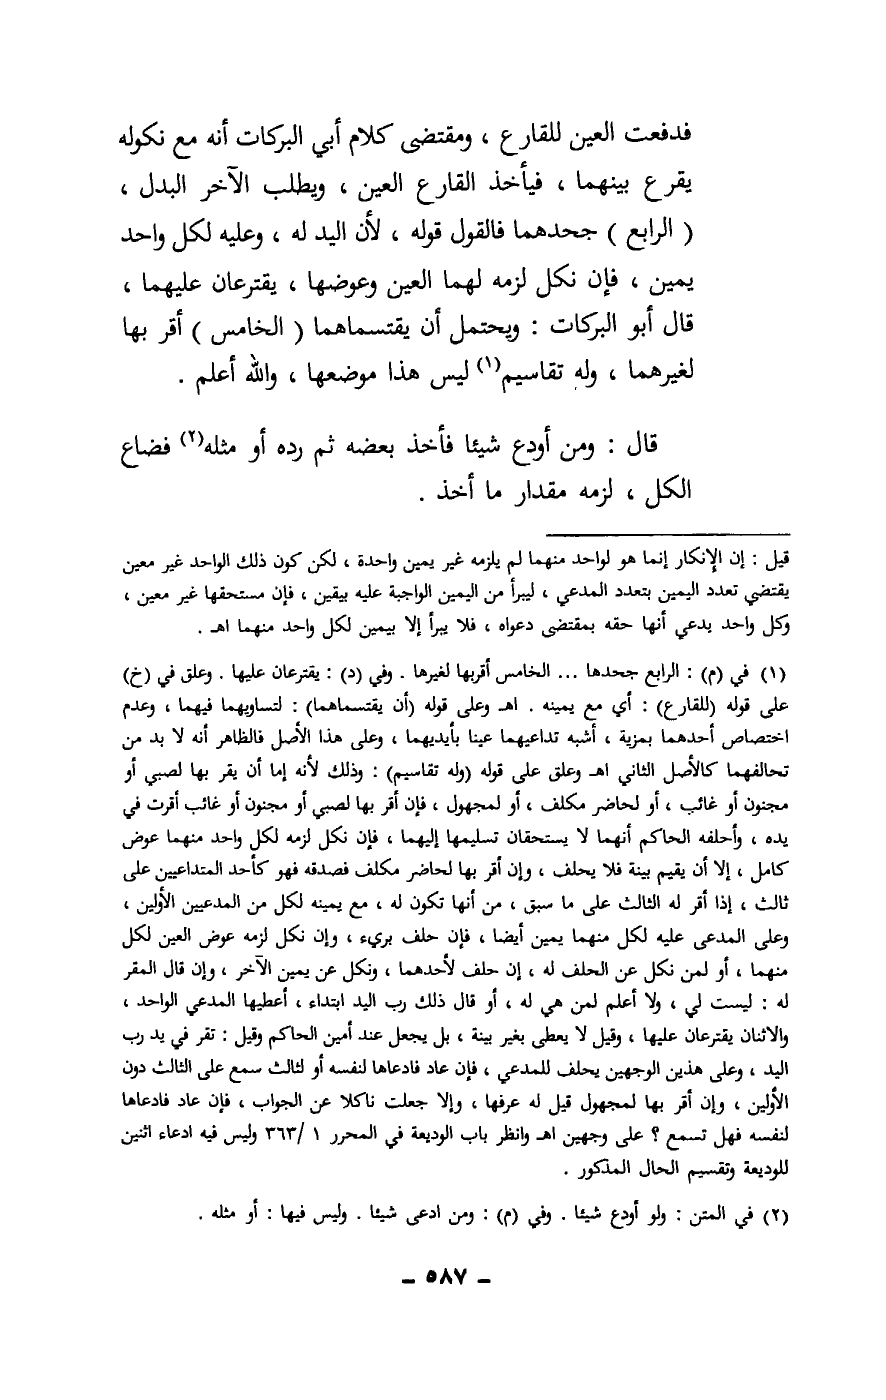 فدفعت العين للقارع ، ومقتضى كلام أبي البركات أنه مع نكوله
يقرع بينهما ، فيأخذ القارع العين ، ويطلب الآخر البدل ،
( الرابع ) جحدهما فالقول قوله ، لأن اليد له ، وعليه لكل واحد
يمين ، فإن نكل لزمه لهما العين وعوضها ، يقترعان عليهما ،
قال أبو البركات : ويحتمل أن يقتسماهما ( الخامس ) أقر بها
لغيرهما ، وله تقاسيم(١) ليس هذا موضعها ، والله أعلم .
قال : ومن أودع شيئا فأخذ بعضه ثم رده أو مثله(٢) فضاع
الكل ، لزمه مقدار ما أخذ .
قيل : إن الإنكار إنما هو لواحد منهما لم يلزمه غير يمين واحدة ، لكن كون ذلك الواحد غير معين
يقتضي تعدد اليمين بتعدد المدعي ، ليبرأ من اليمين الواجبة عليه بيقين ، فإن مستحقها غير معين ،
وكل واحد يدعي أنها حقه بمقتضى دعواه ، فلا يبرأ إلا بيمين لكل واحد منهما اهـ .
(١) في (م) : الرابع جحدها ... الخامس أقربها لغيرها . وفي (د) : يقترعان عليها . وعلق في (خ)
على قوله (للقارع) : أي مع يمينه . اهـ وعلى قوله (أن يقتسماهما) : لتساويهما فيهما ، وعدم
اختصاص أحدهما بمزية ، أشبه تداعيهما عينا بأيديهما ، وعلى هذا الأصل فالظاهر أنه لا بد من
تحالفهما كالأصل الثاني اهـ وعلق على قوله (وله تقاسيم) : وذلك لأنه إما أن يقر بها لصبي أو
مجنون أو غائب ، أو لحاضر مكلف ، أو لمجهول ، فإن أقر بها لصبي أو مجنون أو غائب أقرت في
يده ، وأحلفه الحاكم أنهما لا يستحقان تسليمها إليهما ، فإن نكل لزمه لكل واحد منهما عوض
كامل ، إلا أن يقيم بينة فلا يحلف ، وإن أقر بها لحاضر مكلف فصدقه فهو كأحد المتداعيين على
ثالث ، إذا أقر له الثالث على ما سبق ، من أنها تكون له ، مع يمينه لكل من المدعيين الأولين ،
وعلى المدعى عليه لكل منهما يمين أيضا ، فإن حلف بريء ، وإن نكل لزمه عوض العين لكل
منهما ، أو لمن نكل عن الحلف له ، إن حلف لأحدهما ، ونكل عن يمين الآخر ، وإن قال المقر
له : ليست لي ، ولا أعلم لمن هي له ، أو قال ذلك رب اليد ابتداء ، أعطيها المدعي الواحد ،
والاثنان يقترعان عليها ، وقيل لا يعطى بغير بينة ، بل يجعل عند أمين الحاكم وقيل : تقر في يد رب
اليد ، وعلى هذين الوجهين يحلف للمدعي ، فإن عاد فادعاها لنفسه أو لثالث سمع على الثالث دون
الأولين ، وإن أقر بها لمجهول قيل له عرفها ، وإلا جعلت ناكلا عن الجواب ، فإن عاد فادعاها
لنفسه فهل تسمع ؟ على وجهين اهـ وانظر باب الوديعة في المحرر ١ /٣٦٣ وليس فيه ادعاء اثنين
للوديعة وتقسيم الحال المذكور .
(٢) في المتن : ولو أودع شيئا . وفي (م) : ومن ادعى شيئا . وليس فيها : أو مثله .
ـ ٥٨٧ ـ